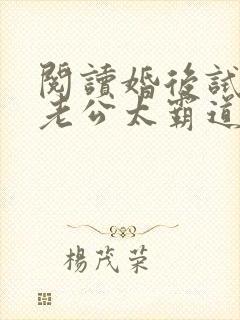 閱讀婚後試
老公太霸道
楊茂榮